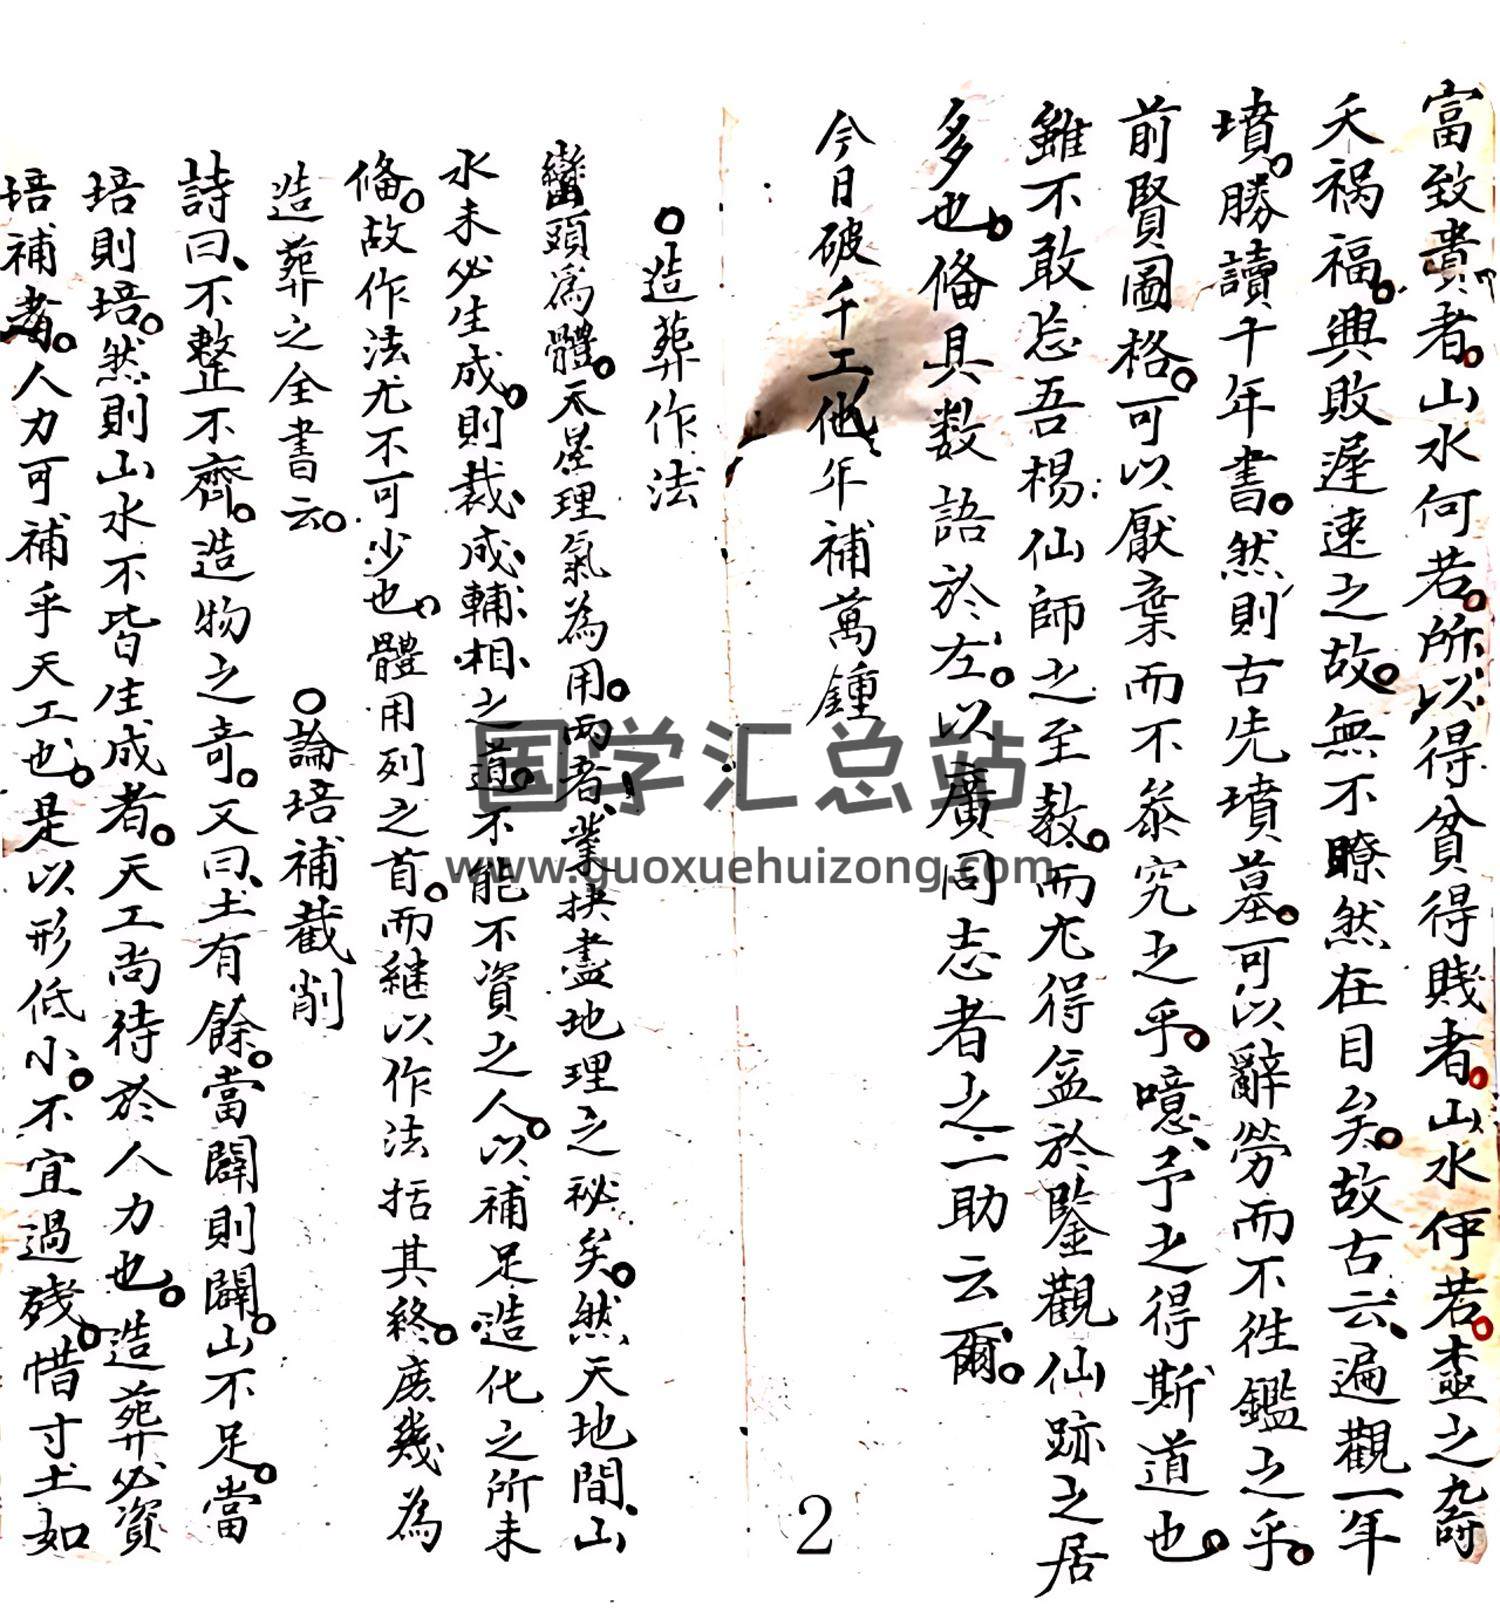 富致貴者。山水何若。所以得貧得賤者。山水何若。壺之九竅
夭禍福。興敗遲速之故。無不瞭然在目矣。故古云、遍觀一年
墳。勝讀十年書。然則古先墳墓。可以辭勞而不徃鑑之乎。
前賢圖格。可以厭棄而不叅究之乎。噫、予之得斯道也。
雖不敢忘吾楊仙師之至教。而尤得益於鑒觀仙跡之居
多也。俻具数語於左。以廣同志者之一助云爾。
今日破千工他年補萬鍾
○造葬作法
巒頭為體。天星理氣為用。两者、業抉盡地理之秘矣。然天地間、山
水未必生成。則裁成輔相之道。不能不資之人。以補足造化之所未
俻。故作法尤不可少也。體用列之首。而継以作法括其終。庶幾為
造葬之全書云。 ○論培補截削
詩曰、不整不齊。造物之奇。又曰、土有餘。當闢則闢。山不足。當
培則培。然則山水不皆生成者。天工尚待於人力也。造葬必資
培補者。人力可補乎天工也。是以形低小。不宜過殘。惜寸土如
2
国学汇总站
www.guoxuehuizong.com